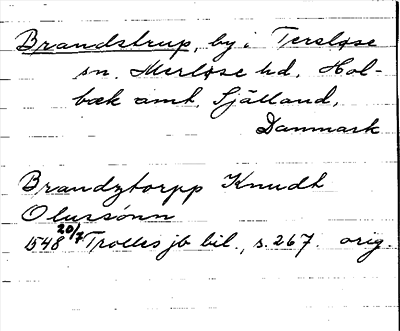 Brandstrup, by i Tersløse
sn. Merløse hd, Hol-
bæk amt, Sjælland,
Danmark
Brandztorpp Knudh
Olussønn
1548 20/7 Trolles jb bil., s. 267. orig.